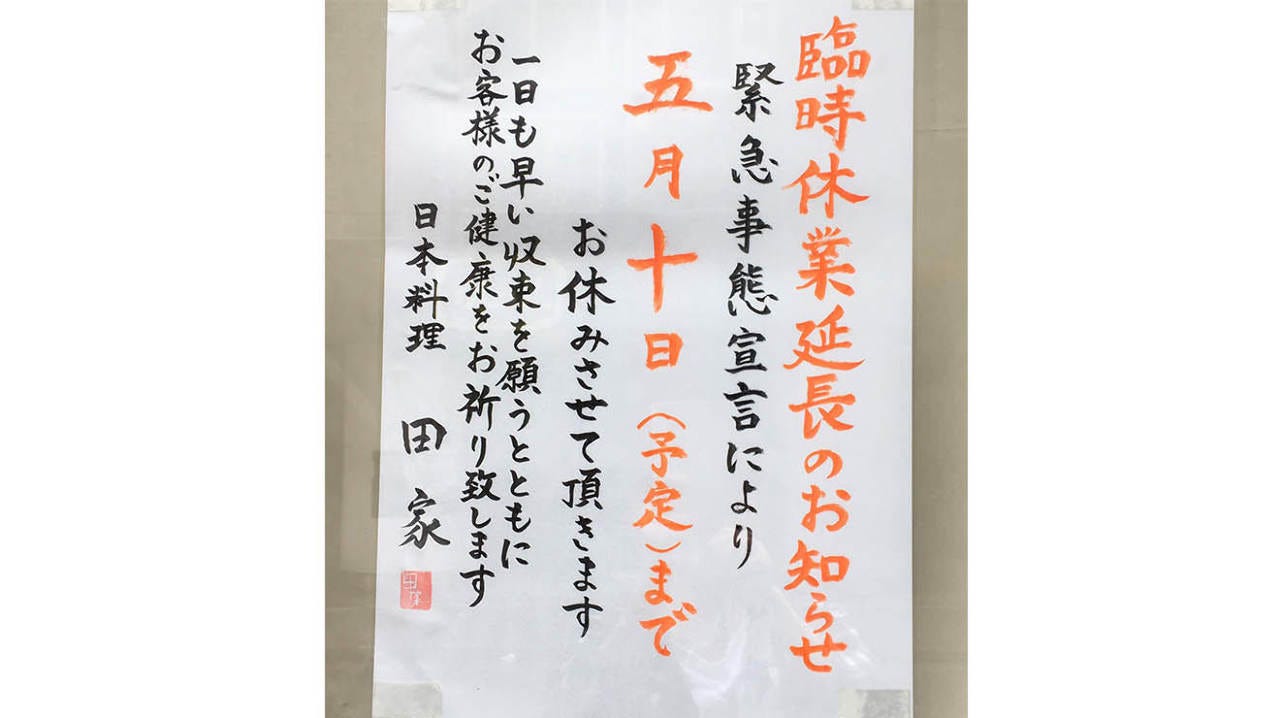 臨時休業延長のお知らせ
緊急事態宣言により
五月十日(予定)まで
お休みさせて頂きます
一日も早い収束を願うとともに
お客様のご健康をお祈り致します
日本料理 田家